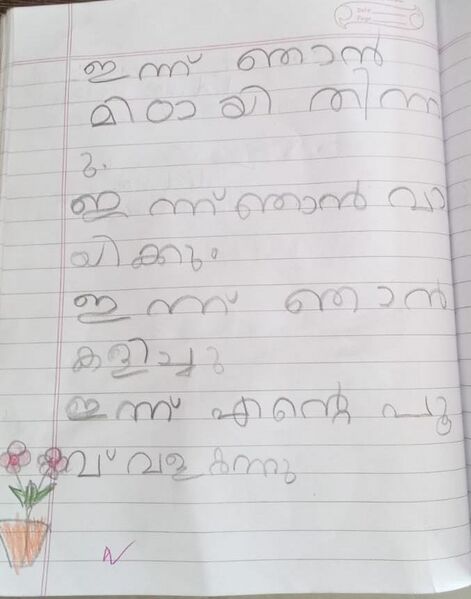 Date
Page
ഇന്ന് ഞാൻ
മിഠായി തിന്ന
ു.
ഇന്ന് ഞാൻ വാ
യിക്കും.
ഇന്ന് ഞാൻ
കളിച്ചു
ഇന്ന് എൻ്റെ പൂ
വ് വളർന്നു